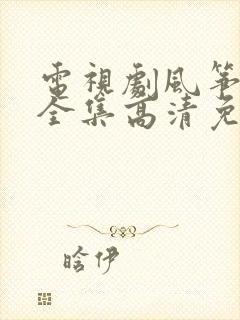 電視劇風箏
全集高清免
晗伊